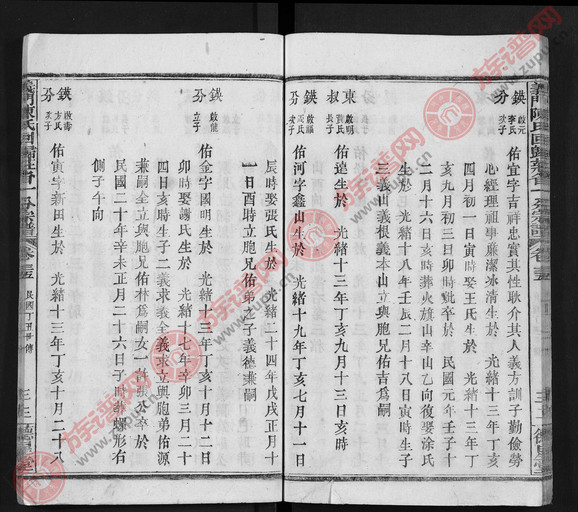 鍈 啟元 李氏 次子
分
佑宜字吉祥忠實其性耿介其人義方訓子勤儉勞
心經理祖事廉潔冰清生於 光緒十三年丁亥
四月初一日寅時娶王氏生於 光緒十三年丁
亥九月初三日卯時歿卒於 民國元年壬子十
二月十六日亥時葬火雄山辛山乙向復娶涂氏
生於 光緒十八年壬辰二月十八日寅時生子
三義山義根義本山立與胞兄佑吉爲嗣
東 啟明 黃氏 長子
叔
佑達生於 光緒十三年丁亥九月十三日亥時
鍈 啟福 長氏 次子
分
佑河字鑫山生於 光緒十九年丁亥七月十一日
辰時娶張氏生於 光緒二十四年戊戌正月十
一日酉時立胞兄佑弟之子義德兼嗣
鍈 啟能 立子
分
佑金字國明生於 光緒十三年丁亥十月十二日
卯時娶謝氏生於 光緒十七年辛卯三月二十
四日亥時生子二義求義全義求立與胞弟佑源
兼嗣全立與胞兄佑林爲嗣女一 公卒於
民國二十年辛未正月二十六日子時葬螺形右
側子午向
鍈 啟壽 方氏 次子
分
佑寅字新田生於 光緒十三年丁亥十月二十八
義門陳氏回歸莊 分宗譜 卷三五
民國丁丑世傳
族譜网
www.zupu.cn